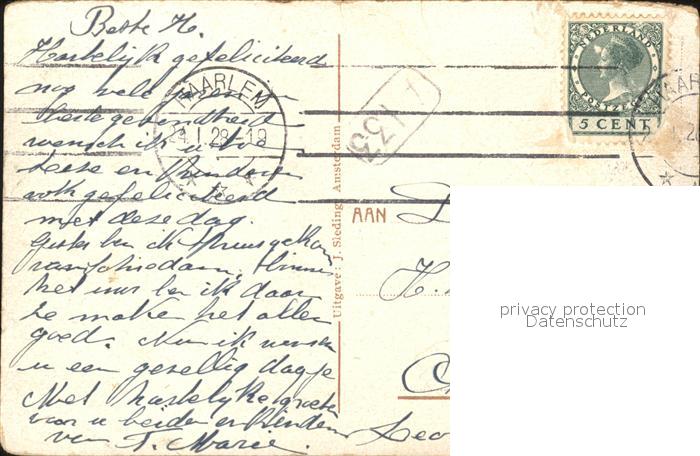 Beste H.
Hartelijk gefeliciteerd
nog vele jaren
beste gezondheid
wensch ik u toe
beste en kinderen
ook gefeliciteerd
met deze dag.
Gister ben ik thuis gekomen
van Schiedam. binnen
het uur ben ik daar
ze maken het allen
goed. Nu ik wensch
u een gezellig dagje
Met hartelijke groeten
voor u beiden en kinderen
van T. Marie.
HAARLEM
24.I.28-19
1133
NEDERLAND
POSTZEGEL
5 CENT
HAARL
Uitgave: J. Sleding, Amsterdam
AAN
H.
privacy protection
Datenschutz